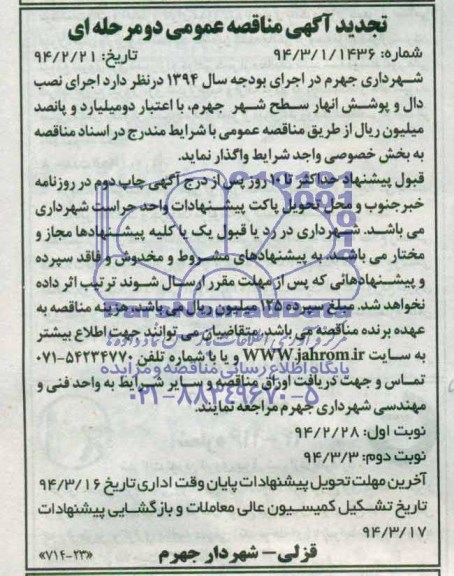 تجدید آگهی مناقصه عمومی دومرحله ای
شماره: ۹۴/۳/۱/۱۴۳۶ تاریخ: ۹۴/۲/۲۱
شهرداری جهرم در اجرای بودجه سال ۱۳۹۴ درنظر دارد اجرای نصب
دال و پوشش انهار سطح شهر جهرم، با اعتبار دومیلیارد و پانصد
میلیون ریال از طریق مناقصه عمومی با شرایط مندرج در اسناد مناقصه
به بخش خصوصی واجد شرایط واگذار نماید.
قبول پیشنهاد حداکثر تا ۱۰ روز پس از درج آگهی چاپ دوم در روزنامه
خبرجنوب و محل تحویل پاکت پیشنهادات واحد حراست شهرداری
می باشد. شهرداری در رد یا قبول یک یا کلیه پیشنهادها مجاز و
مختار می باشد. به پیشنهادهای مشروط و مخدوش و فاقد سپرده
و پیشنهادهائی که پس از مهلت مقرر ارسال شوند ترتیب اثر داده
نخواهد شد. مبلغ سپرده ۱۲۵ میلیون ریال می باشد. هزینه مناقصه به
عهده برنده مناقصه می باشد. متقاضیان می توانند جهت اطلاع بیشتر
به سایت WWW.jahrom.ir و یا با شماره تلفن ۵۴۲۳۴۷۷۰-۰۷۱
تماس و جهت دریافت اوراق مناقصه و سایر شرایط به واحد فنی و
مهندسی شهرداری جهرم مراجعه نمایند.
نوبت اول: ۹۴/۲/۲۸
نوبت دوم: ۹۴/۳/۳
آخرین مهلت تحویل پیشنهادات پایان وقت اداری تاریخ ۹۴/۳/۱۶
تاریخ تشکیل کمیسیون عالی معاملات و بازگشایی پیشنهادات
۹۴/۳/۱۷
قزلی- شهردار جهرم «۷۱۴-۲۳»
ParsNamadData
پایگاه اطلاع رسانی مناقصه و مزایده
۰۲۱-۸۸۳۴۹۶۷۰-۵